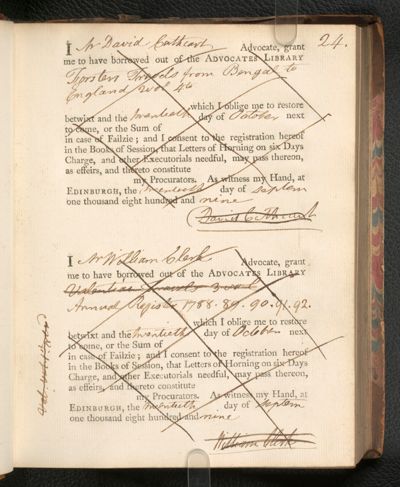 24.
I Mr David Cathcart Advocate, grant
me to have borrowed out of the ADVOCATES LIBRARY
Forsters Travels from Bengal to
England 2 vol 4to
which I oblige me to restore
betwixt and the twentieth day of October next
to come, or the Sum of
in case of Failzie; and I consent to the registration hereof
in the Books of Session, that Letters of Horning on six Days
Charge, and other Executorials needful, may pass thereon,
as effeirs, and thereto constitute
my Procurators. As witness my Hand, at
EDINBURGH, the twentieth day of Septem
one thousand eight hundred and nine
David Cathcart
I Mr William Clerk Advocate, grant
me to have borrowed out of the ADVOCATES LIBRARY
Valentias Travels 3 vol
Annual Register 1788. 89. 90. 91. 92.
which I oblige me to restore
betwixt and the twentieth day of October next
to come, or the Sum of
in case of Failzie; and I consent to the registration hereof
in the Books of Session, that Letters of Horning on six Days
Charge, and other Executorials needful, may pass thereon,
as effeirs, and thereto constitute
my Procurators. As witness my Hand, at
EDINBURGH, the twentieth day of Septem
one thousand eight hundred and nine
William Clerk